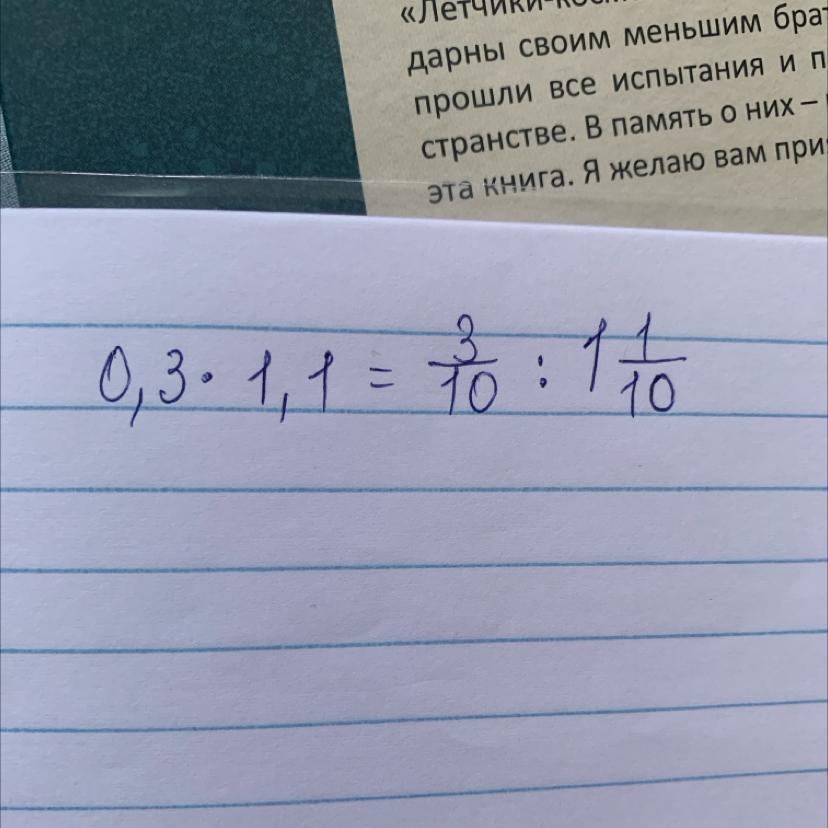 «Летчики-кос
дарны своим меньшим брат
прошли все испытания и п
странстве. В память о них –
эта книга. Я желаю вам при
0,3 · 1,1 = 3/10 : 1 1/10